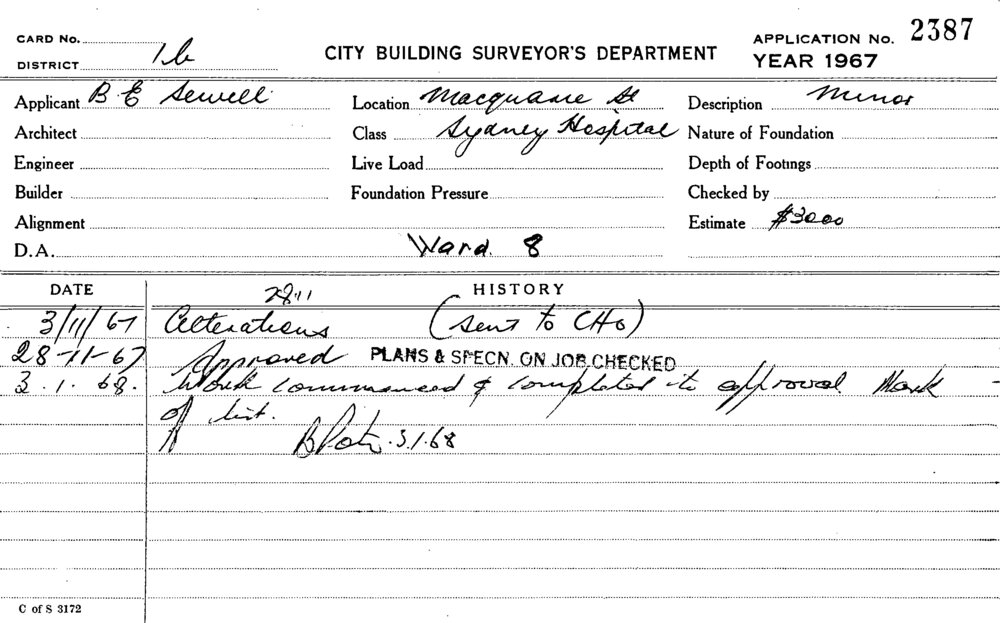 CARD No. CITY BUILDING SURVEYOR'S DEPARTMENT APPLICATION No. 2387
DISTRICT 1b YEAR 1967
Applicant B E Sewell Location Macquarie St Description Minor
Architect Class Sydney Hospital Nature of Foundation
Engineer Live Load Depth of Footings
Builder Foundation Pressure Checked by
Alignment Estimate $3000
D.A. Ward. 8
DATE 28.11 HISTORY
3/11/67 Alterations (Sent to CHO)
28-11-67 Approved PLANS & SPECN. ON JOB CHECKED
3.1.68. Work commenced & completed to approval Mark
off list.
3/1/68
C of S 3172